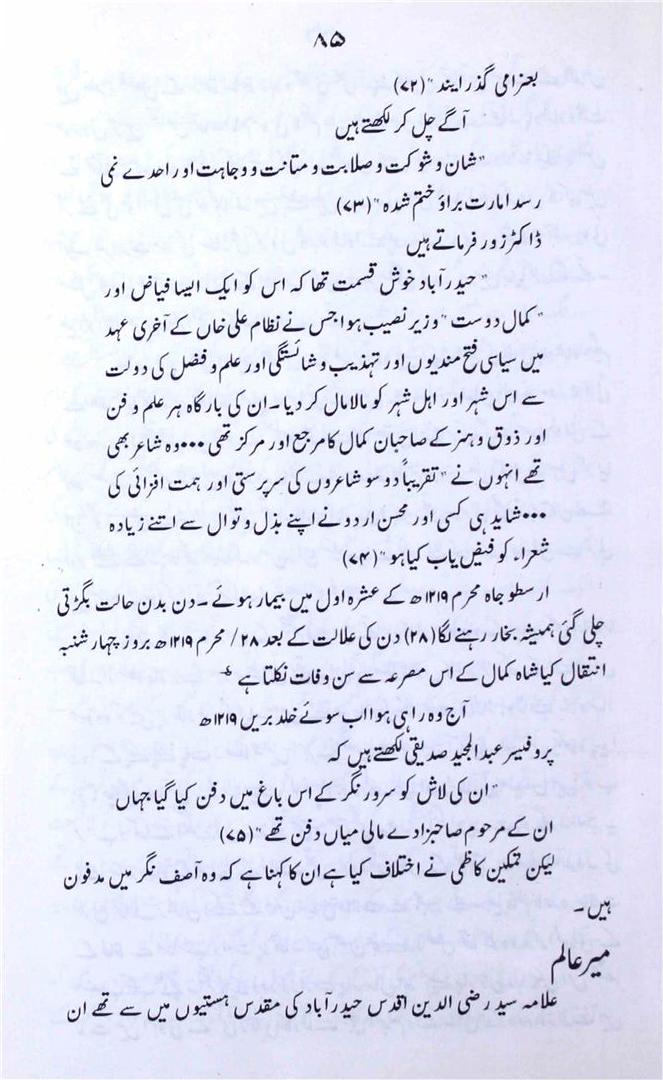 ۸۵
بعزامی گذرایند " (۷۲)
آگے چل کر لکھتے ہیں
"شان و شوکت و صلابت و متانت و وجاہت اور احدے نمی
رسد امارت براؤ ختم شدہ " (۷۳)
ڈاکٹر زور فرماتے ہیں
" حیدرآباد خوش قسمت تھا کہ اس کو ایک ایسا فیاض اور
" کمال دوست " وزیر نصیب ہوا جس نے نظام علی خاں کے آخری عہد
میں سیاسی فتح مندیوں اور تہذیب و شائستگی اور علم و فضل کی دولت
سے اس شہر اور اہل شہر کو مالا مال کر دیا ۔ ان کی بارگاہ ہر علم و فن
اور ذوق و ہنر کے صاحبان کمال کا مرجع اور مرکز تھی ۰۰۰ وہ شاعر بھی
تھے انہوں نے " تقریباً دو سو شاعروں کی سرپرستی اور ہمت افزائی کی
۰۰۰ شاید ہی کسی اور محسن اردو نے اپنے بذل و نوال سے اتنے زیادہ
شعراء کو فیض یاب کیا ہو " (۷۴)
ارسطو جاہ محرم ۱۲۱۹ھ کے عشرہ اول میں بیمار ہوئے ۔ دن بدن حالت بگڑتی
چلی گئی ہمیشہ بخار رہنے لگا (۲۸) دن کی علالت کے بعد ۲۸ / محرم ۱۲۱۹ھ بروز چہار شنبہ
انتقال کیا شاہ کمال کے اس مصرعہ سے سن وفات نکلتا ہے ؎
آج وہ راہی ہوا اب سوئے خلد بریں ۱۲۱۹ھ
پروفیسر عبدالمجید صدیقی لکھتے ہیں کہ
" ان کی لاش کو سرور نگر کے اس باغ میں دفن کیا گیا جہاں
ان کے مرحوم صاحبزادے مالی میاں دفن تھے " (۷۵)
لیکن تمکین کاظمی نے اختلاف کیا ہے ان کا کہنا ہے کہ وہ آصف نگر میں مدفون
ہیں ۔
میر عالم
علامہ سید رضی الدین اقدس حیدرآباد کی مقدس ہستیوں میں سے تھے ان